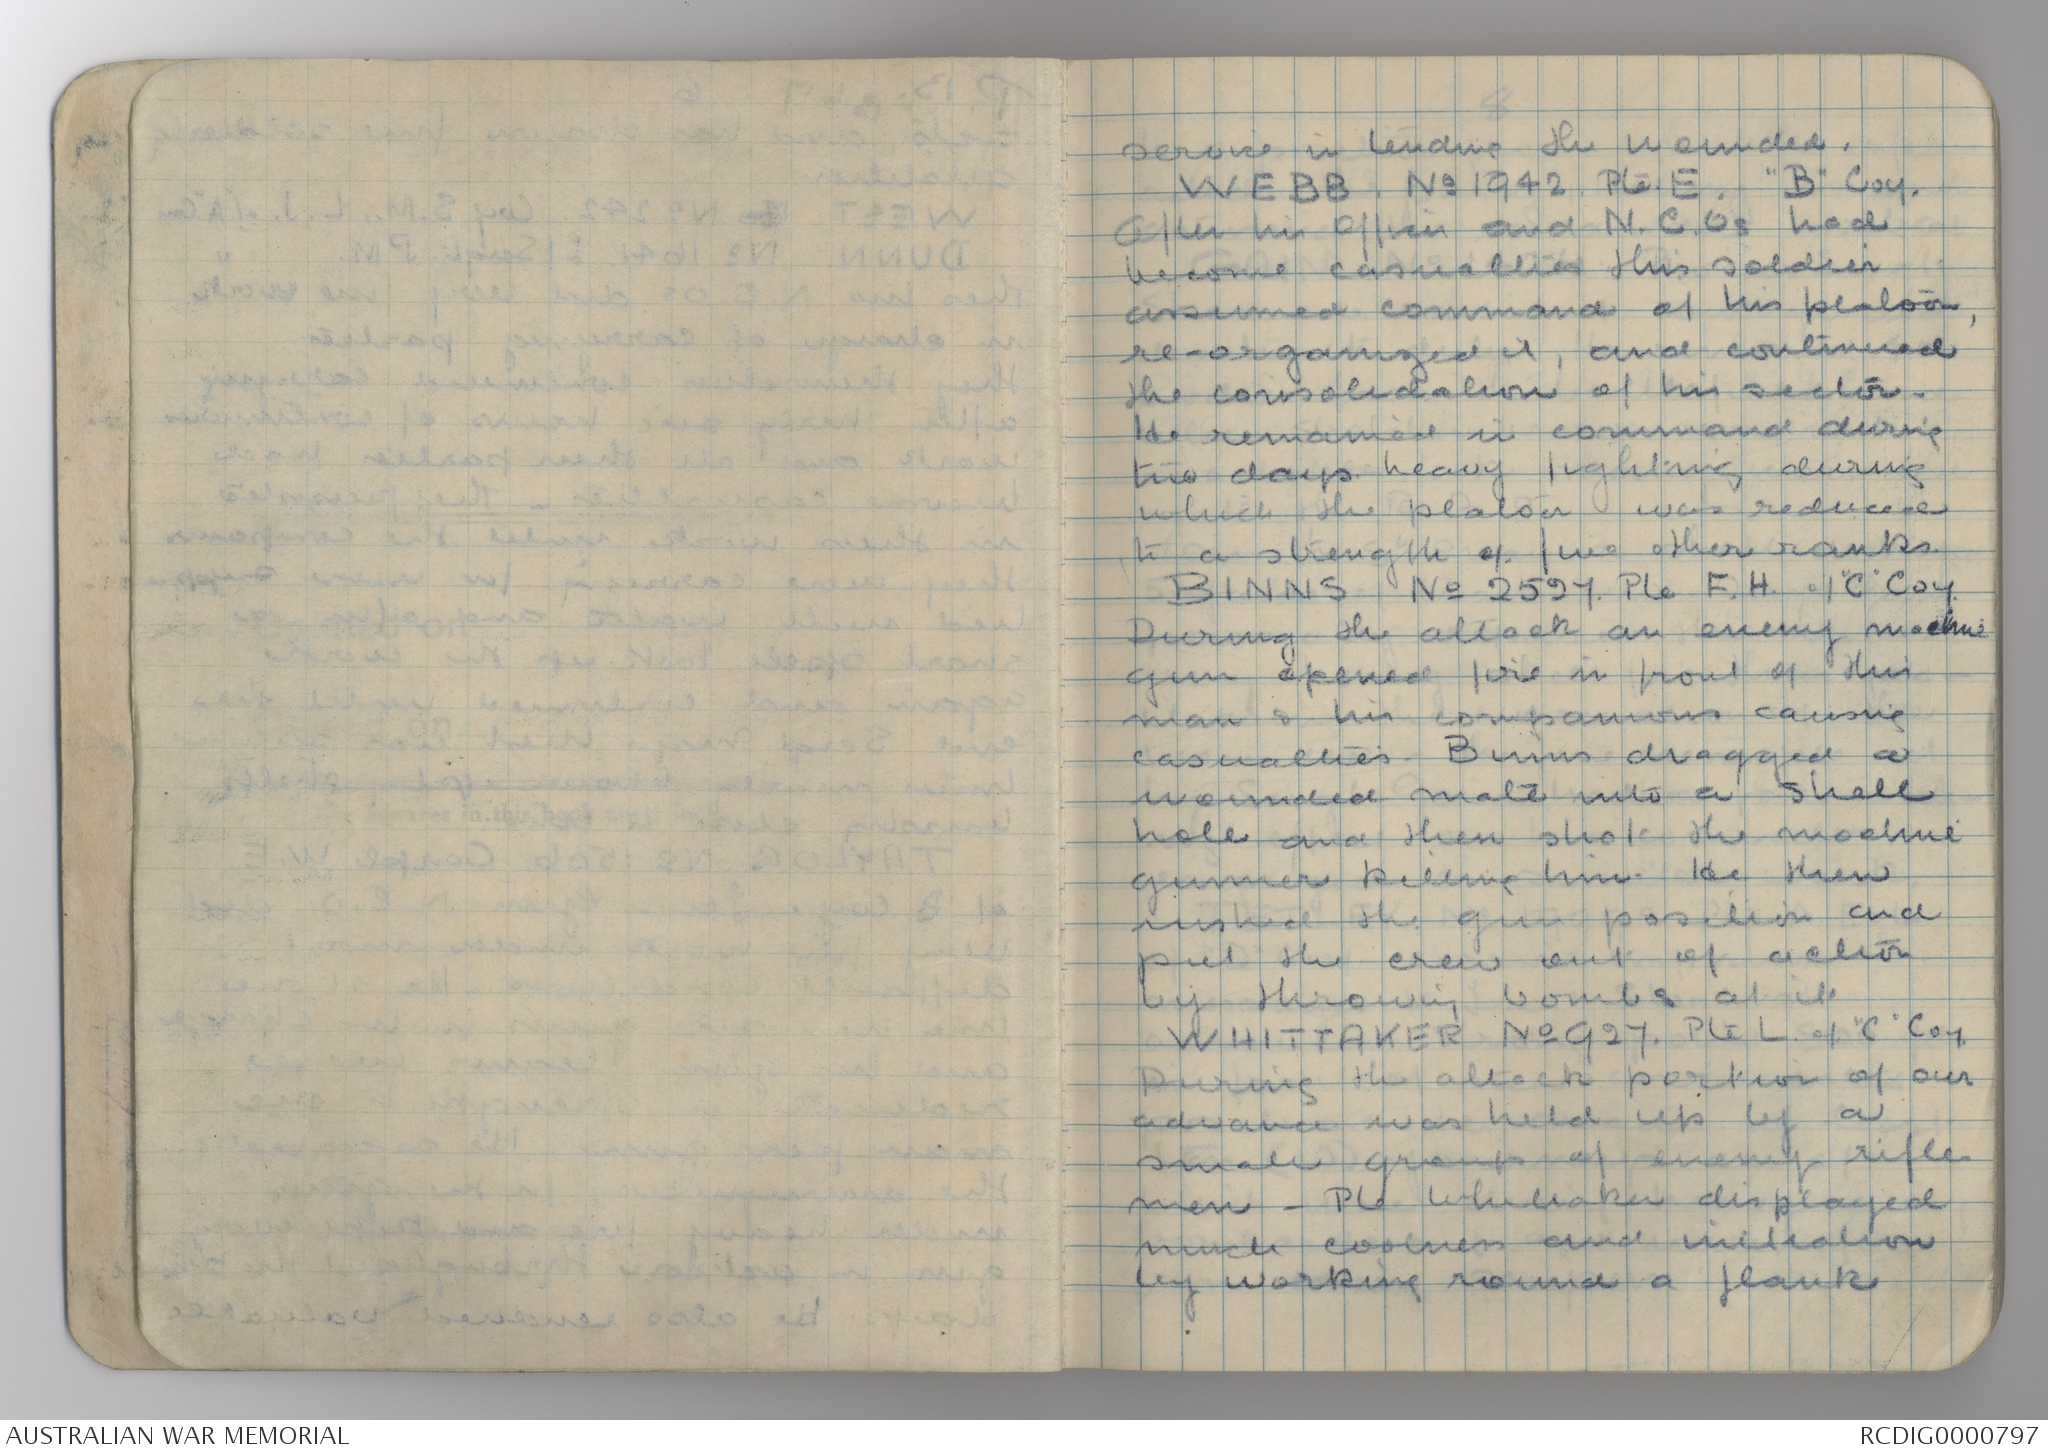 8
service in tending the wounded.
WEBB. No 1942. Pte. E. "B" Coy.
After his Officer and N.C.Os had
become casualties this soldier
assumed command of his platoon,
re-organized it, and continued
the consolidation of his sector.
He remained in command during
two days heavy fighting during
which the platoon was reduced
to a strength of five other ranks.
BINNS No 2597. Pte F.H. of "C" Coy.
During the attack an enemy machine
gun opened fire in front of this
man & his companions causing
casualties. Binns dragged a
wounded mate into a shell
hole and then shot the machine
gunner killing him. He then
rushed the gun position and
put the crew out of action
by throwing bombs at it
WHITTAKER No 927. Pte L. of "C" Coy.
During the attack portion of our
advance was held up by a
small group of enemy rifle
men - Pte Whittaker displayed
much coolness and initiation
by working round a flank
AUSTRALIAN WAR MEMORIAL
RCDIG0000797